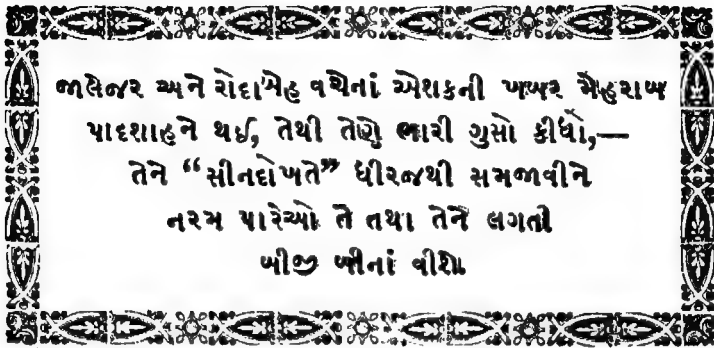 જાલેજર અને રોદાબેહ વચેનાં એશકની ખબર મેહરાબ
પાદશાહને થઈ, તેથી તેણે ભારી ગુસો કીધો,—
તેને “સીનદોખતે” ધીરજથી સમજાવીને
નરમ પારેઓ તે તથા તેને લગતી
બીજી બીનાં વીશે